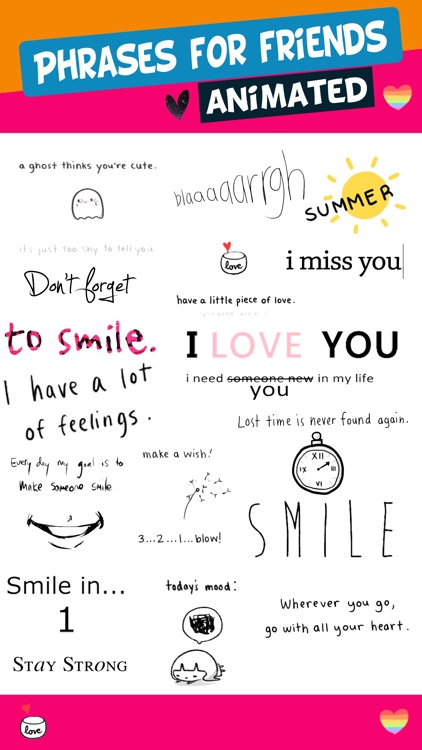 PHRASES FOR FRIENDS
ANIMATED
a ghost thinks you're cute.
it's just too shy to tell you.
blaaaaaarrgh
SUMMER
Don't forget
to smile.
love
have a little piece of love.
i miss you
I LOVE YOU
i need someone new in my life
you
I have a lot
of feelings.
Lost time is never found again.
XII
III
VI
IX
Every day my goal is to
make someone smile
make a wish!
3...2...1...blow!
SMILE
Smile in...
1
STAY STRONG
today's mood:
Wherever you go,
go with all your heart.
love